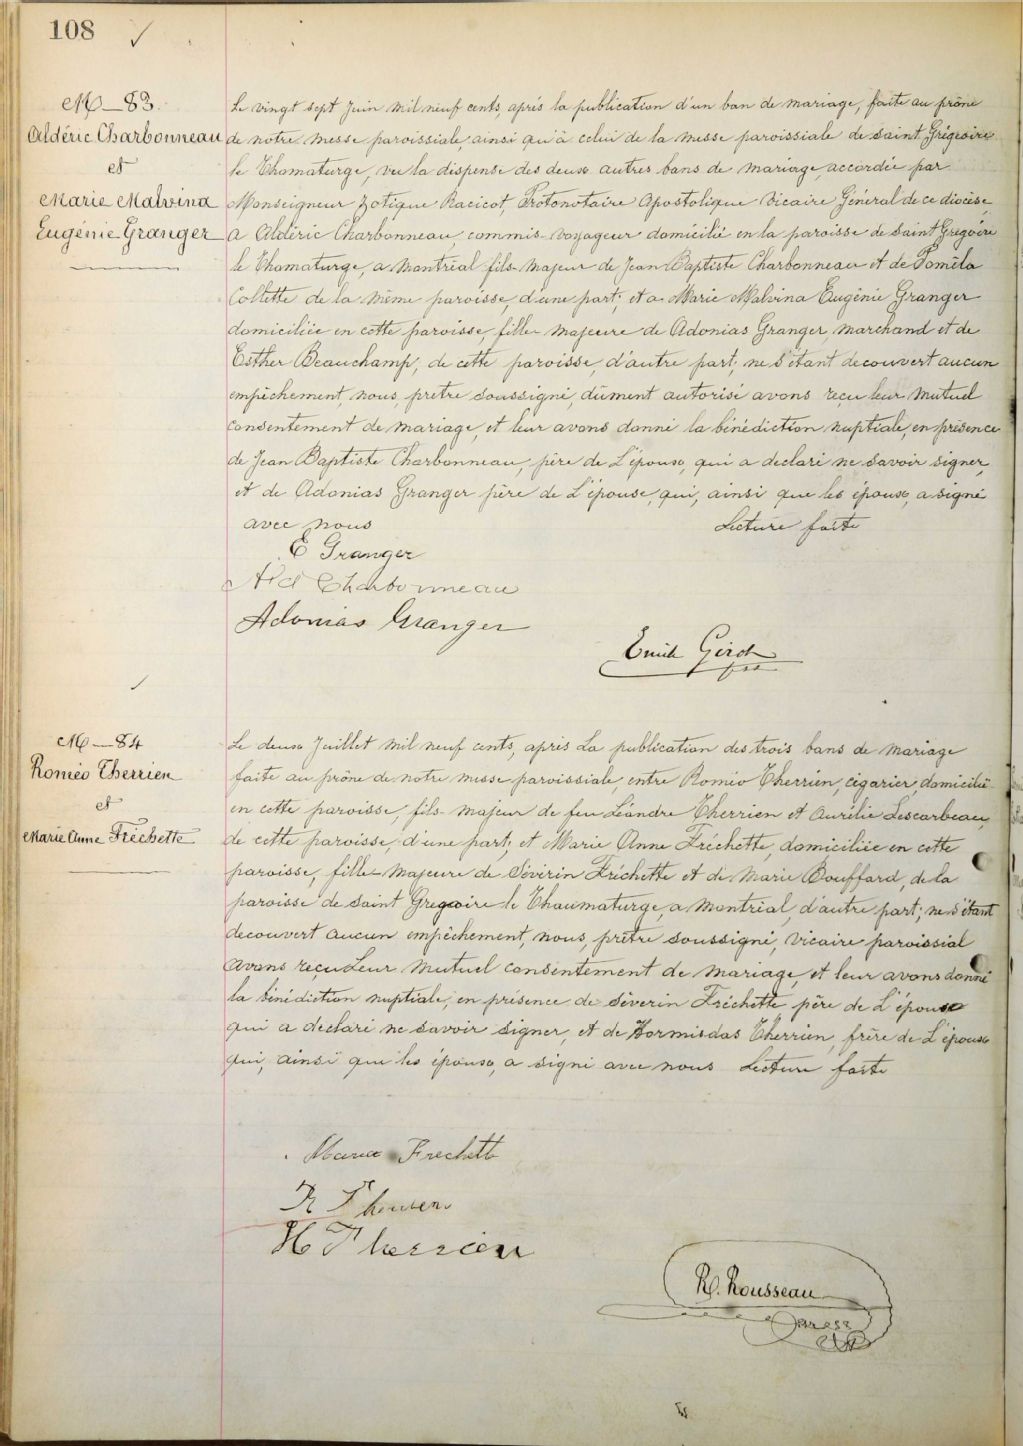 108
M—83
Aldéric Charbonneau
et
Marie Malvina
Eugénie Granger
Le vingt sept Juin mil neuf cents, après la publication d'un ban de mariage, faite au prône
de notre messe paroissiale ainsi qu'à celui de la messe paroissiale de Saint Grégoire
le Thamaturge, vu la dispense des deux autres bans de mariage, accordée par
Monseigneur Zotique Racicot Protonotaire Apostolique Vicaire Général de ce diocèse,
a Aldéric Charbonneau, commis-voyageur domicilié en la paroisse de Saint Grégoire
le Thamaturge, a Montréal, fils majeur de Jean Baptiste Charbonneau et de Paméla
Collette de la même paroisse, d'une part; et a Marie Malvina Eugénie Granger
domiciliée en cette paroisse, fille majeure de Adonias Granger, marchand et de
Esther Beauchamp, de cette paroisse, d'autre part; ne s'étant decouvert aucun
empêchement, nous, prêtre soussigné, dûment autorisé avons reçu leur mutuel
consentement de mariage, et leur avons donné la bénédiction nuptiale, en présence
de Jean Baptiste Charbonneau, père de L'époux, qui a declaré ne savoir signer,
et de Adonias Granger père de L'épouse, qui, ainsi que les époux, a signé
avec nous Lecture faite
E Granger
Ald Charbonneau
Adonias Granger
Emile Girot
pss
M—84
Roméo Therrien
et
Marie Anne Fréchette
Le deux Juillet mil neuf cents, après La publication des trois bans de mariage
faite au prône de notre messe paroissiale, entre Roméo Therrien, cigarier, domicilié
en cette paroisse, fils majeur de feu Léandre Therrien et Aurélie Lescarbeau,
de cette paroisse, d'une part; et Marie Anne Fréchette, domiciliée en cette
paroisse, fille majeure de Séverin Fréchette et de Marie Bouffard, de la
paroisse de Saint Gregoire le Thaumaturge, a Montréal, d'autre part; ne s'étant
decouvert aucun empêchement, nous, prêtre soussigné, vicaire paroissial
avons reçu Leur mutuel consentement de mariage, et leur avons donné
la bénédiction nuptiale, en présence de Séverin Fréchette père de L'épouse
qui a declaré ne savoir signer, et de Hormisdas Therrien, frère de L'époux
qui, ainsi que les époux, a signé avec nous Lecture faite
Maria Frechette
R Therrien
H Therrien
R. Rousseau